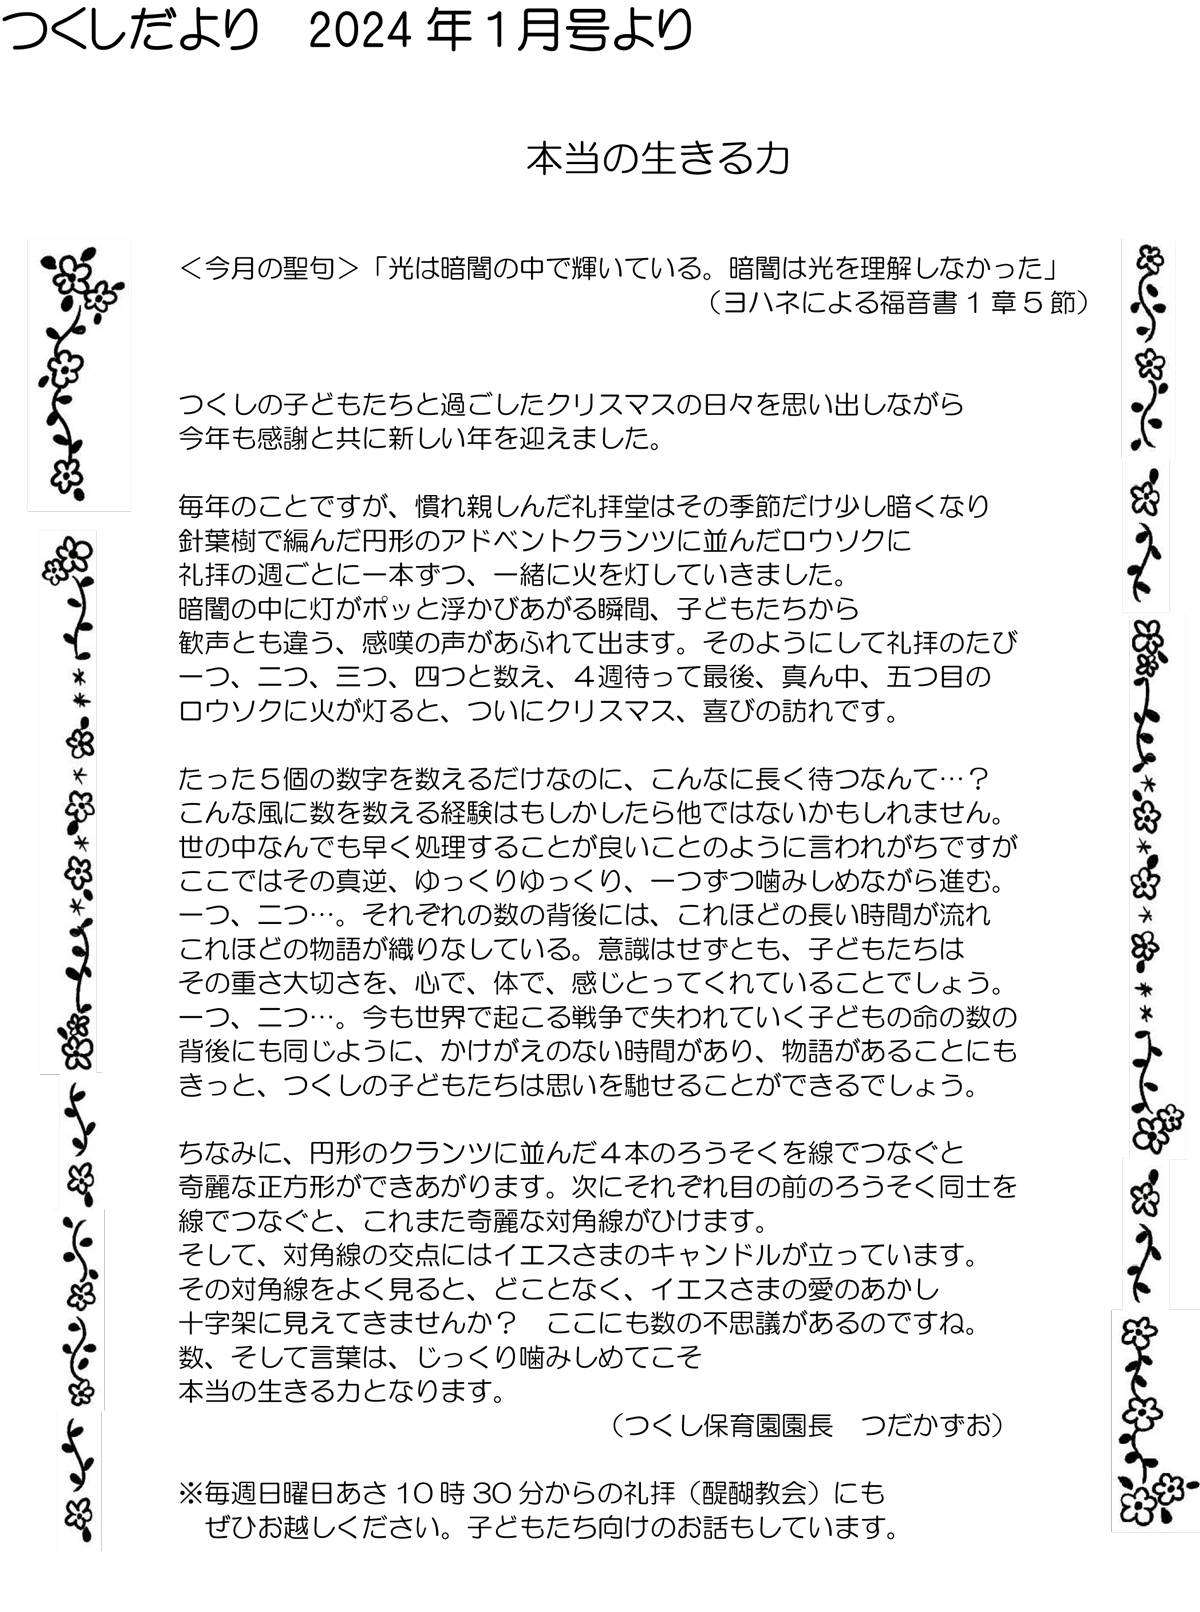 つくしだより　2024 年 1 月号より
本当の生きる力
＜今月の聖句＞「光は暗闇の中で輝いている。暗闇は光を理解しなかった」
（ヨハネによる福音書 1 章 5 節）
つくしの子どもたちと過ごしたクリスマスの日々を思い出しながら
今年も感謝と共に新しい年を迎えました。
毎年のことですが、慣れ親しんだ礼拝堂はその季節だけ少し暗くなり
針葉樹で編んだ円形のアドベントクランツに並んだロウソクに
礼拝の週ごとに一本ずつ、一緒に火を灯していきました。
暗闇の中に灯がポッと浮かびあがる瞬間、子どもたちから
歓声とも違う、感嘆の声があふれて出ます。そのようにして礼拝のたび
一つ、二つ、三つ、四つと数え、４週待って最後、真ん中、五つ目の
ロウソクに火が灯ると、ついにクリスマス、喜びの訪れです。
たった５個の数字を数えるだけなのに、こんなに長く待つなんて…？
こんな風に数を数える経験はもしかしたら他ではないかもしれません。
世の中なんでも早く処理することが良いことのように言われがちですが
ここではその真逆、ゆっくりゆっくり、一つずつ噛みしめながら進む。
一つ、二つ…。それぞれの数の背後には、これほどの長い時間が流れ
これほどの物語が織りなしている。意識はせずとも、子どもたちは
その重さ大切さを、心で、体で、感じとってくれていることでしょう。
一つ、二つ…。今も世界で起こる戦争で失われていく子どもの命の数の
背後にも同じように、かけがえのない時間があり、物語があることにも
きっと、つくしの子どもたちは思いを馳せることができるでしょう。
ちなみに、円形のクランツに並んだ４本のろうそくを線でつなぐと
奇麗な正方形ができあがります。次にそれぞれ目の前のろうそく同士を
線でつなぐと、これまた奇麗な対角線がひけます。
そして、対角線の交点にはイエスさまのキャンドルが立っています。
その対角線をよく見ると、どことなく、イエスさまの愛のあかし
十字架に見えてきませんか？　ここにも数の不思議があるのですね。
数、そして言葉は、じっくり噛みしめてこそ
本当の生きる力となります。
（つくし保育園園長　つだかずお）
※毎週日曜日あさ 10 時 30 分からの礼拝（醍醐教会）にも
ぜひお越しください。子どもたち向けのお話もしています。